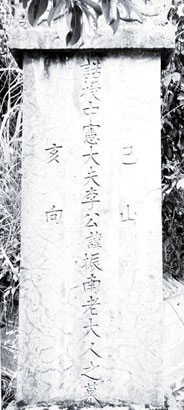 巳山
誥授中憲大夫李公諱振南老大人之墓
亥向